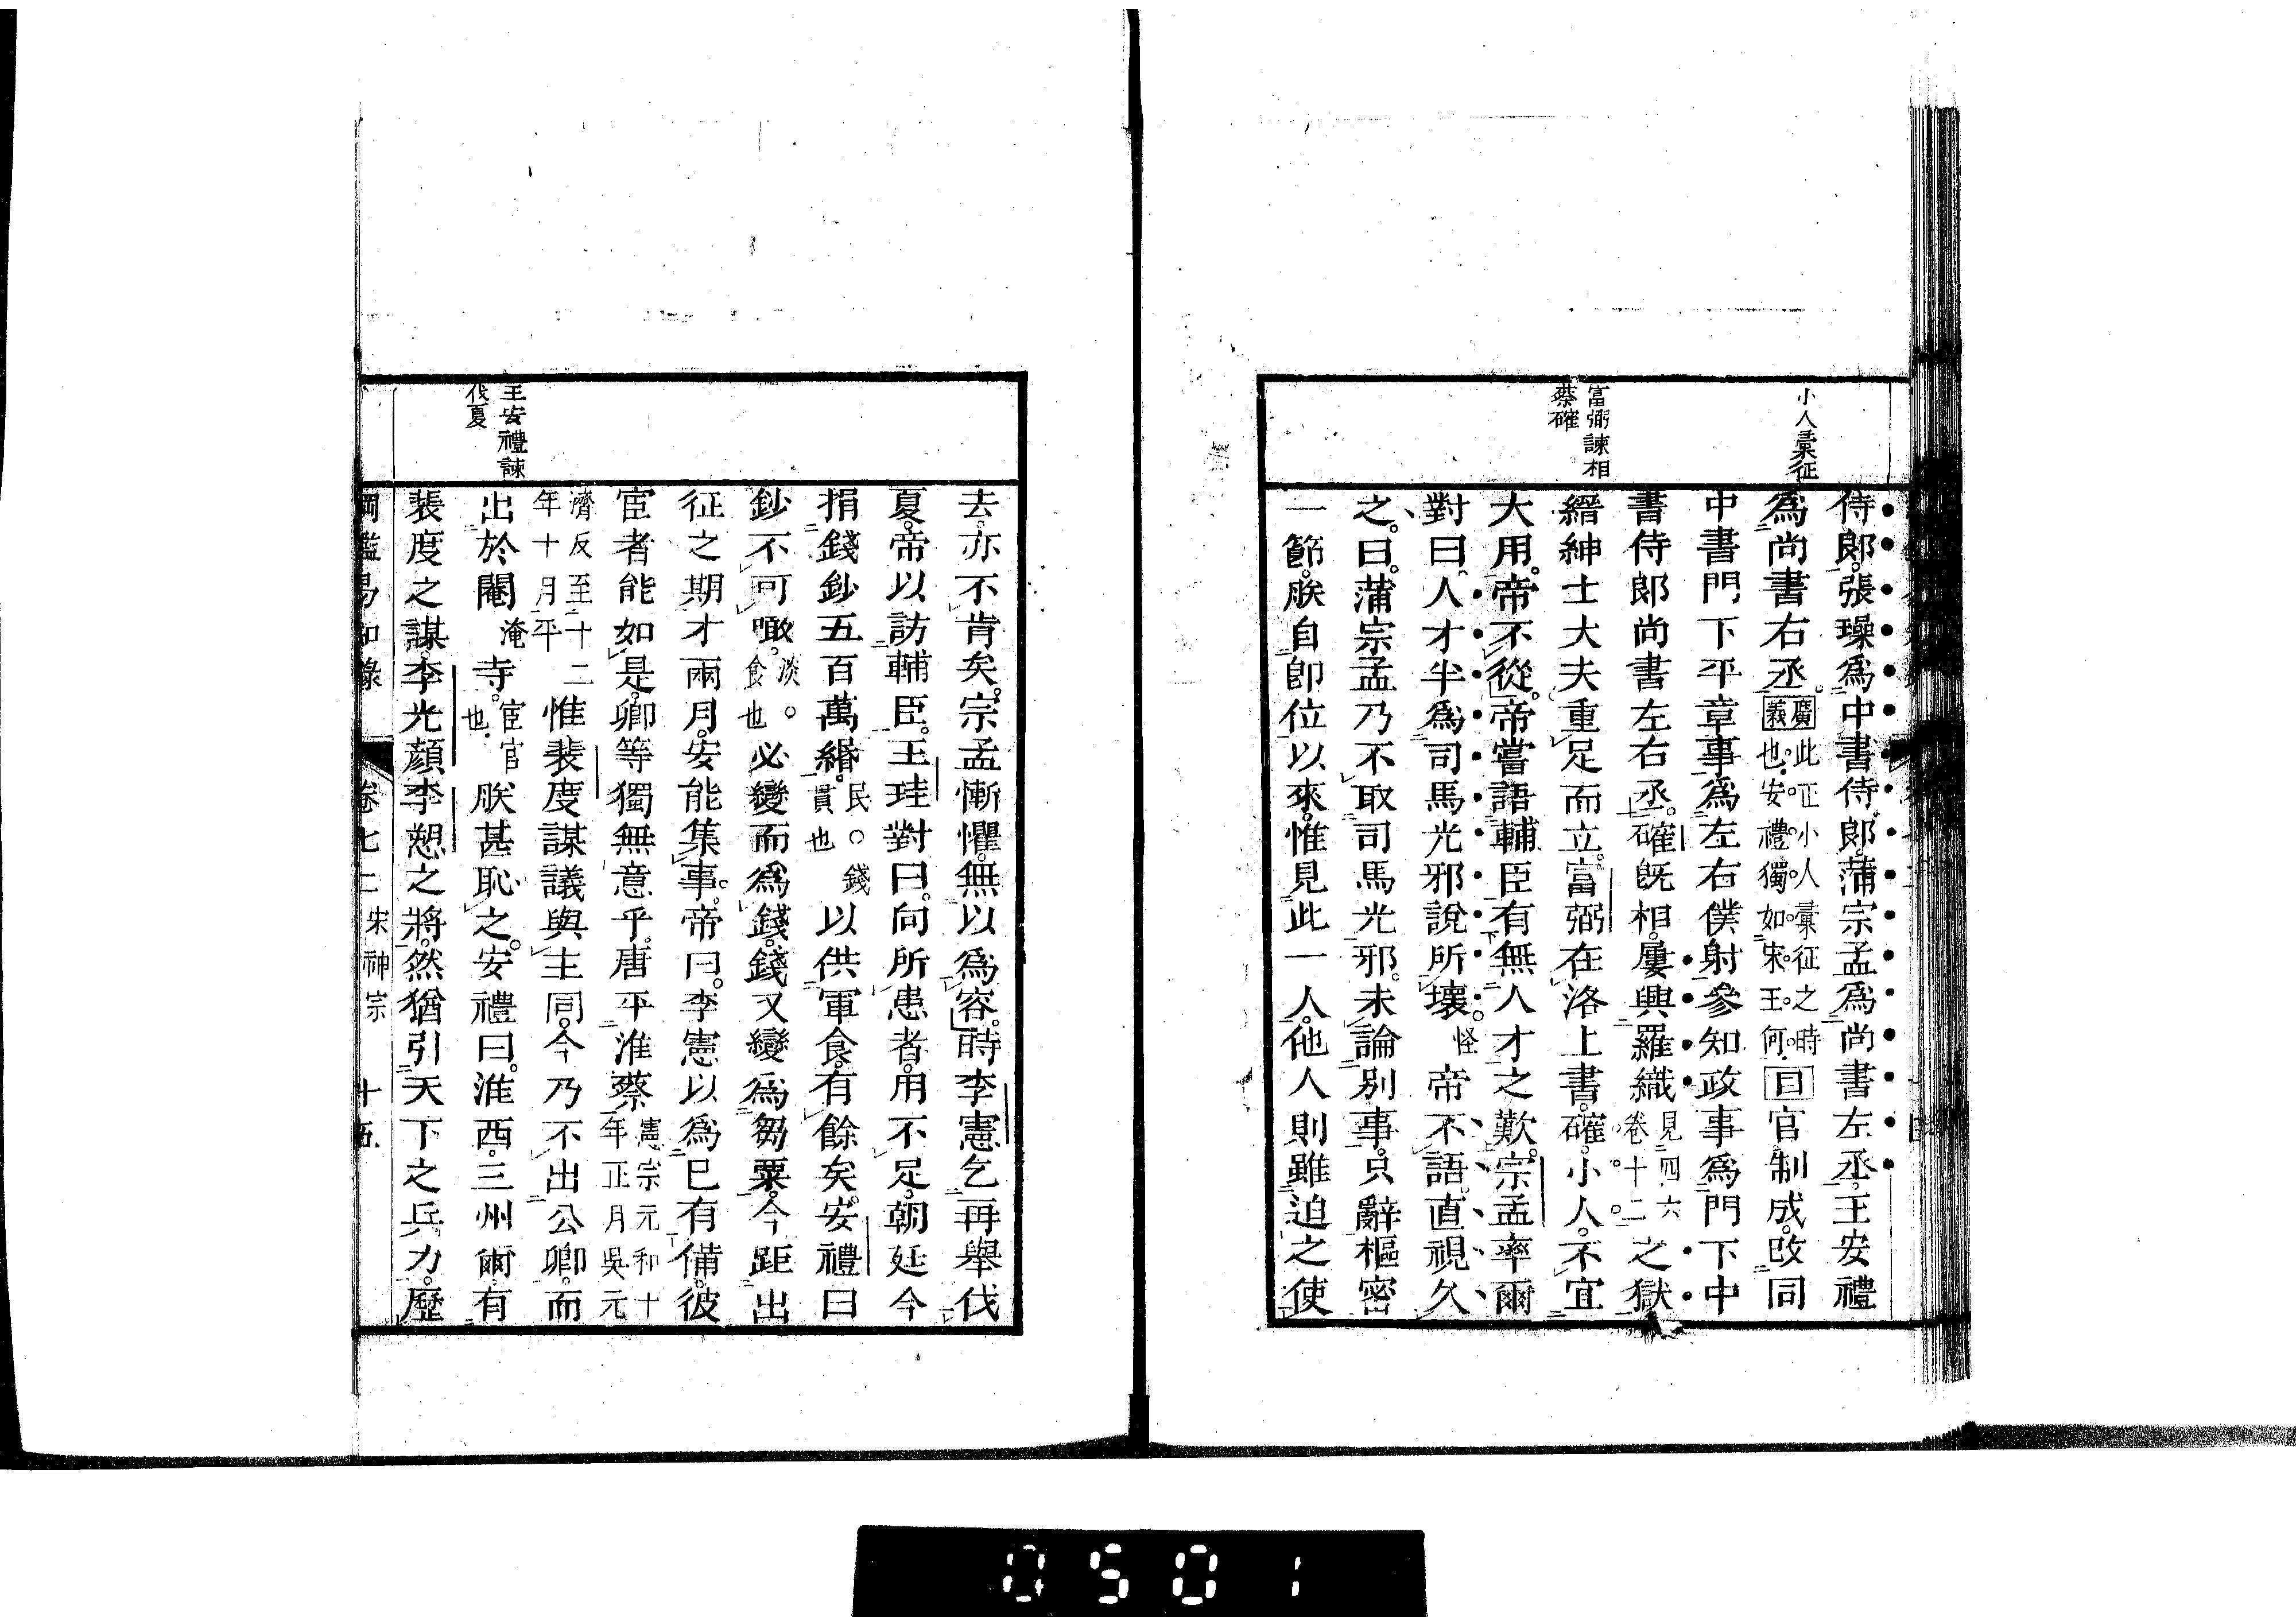 小人彙征
侍郎。張璪爲中書侍郎。蒲宗孟爲尚書左丞。王安禮
爲尚書右丞。廣義此正小人彙征之時也。安禮獨如宋王何。目官制成。改同
中書門下平章事爲左右僕射參知政事爲門下中
書侍郎尚書左右丞。確既相。屢興羅織見四六卷十二之獄
富弼諫相
蔡確
縉紳士大夫重足而立。富弼在洛上書。確。小人。不宜
大用。帝不從。帝嘗語輔臣有無人才之歎。宗孟率爾
對曰。人才半爲司馬光邪說所壞。怪帝不語。直視久
之。曰。蒲宗孟乃不取司馬光邪。未論別事。只辭樞密
一節。朕自卽位以來。惟見此一人。他人則雖迫之使
去。亦不肯矣。宗孟慚懼。無以爲容。時李憲乞再舉伐
夏。帝以訪輔臣。王珪對曰。向所患者。用不足。朝廷今
捐錢鈔五百萬緡。民。錢貫也以供軍食。有餘矣。安禮曰
鈔不可噉。淡。食也必變而爲錢。錢又變爲芻粟。今距出
征之期才兩月。安能集事。帝曰。李憲以爲已有備。彼
宦者能如是。卿等獨無意乎。唐平淮蔡憲宗元和十年正月吳元
濟反至十二年十月平惟裴度謀議與主同。今乃不出公卿。而
王安禮諫
伐夏
出於閹淹寺。宦官也。朕甚恥之。安禮曰。淮西。三州爾。有
裴度之謀。李光顏李愬之將。然猶引天下之兵力。歷
綱鑑易知錄 卷七二 宋神宗 十五